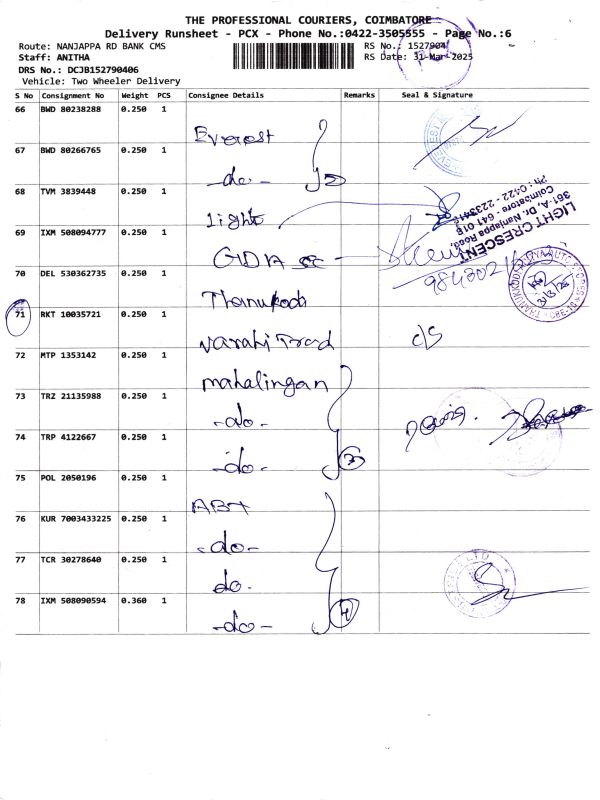 THE PROFESSIONAL COURIERS, COIMBATORE
Delivery Runsheet - PCX - Phone No.:0422-3505555 - Page No.:6
Route: NANJAPPA RD BANK CMS
RS No.: 1527904
Staff: ANITHA
RS Date: 31-Mar-2025
DRS No.: DCJB152790406
Vehicle: Two Wheeler Delivery
S No Consignment No Weight PCS Consignee Details Remarks Seal & Signature
66 BWD 80238288 0.250 1 Everest
67 BWD 80266765 0.250 1 -do- 2
68 TVM 3839448 0.250 1 light
LIGHT CRESCENT
361-A, Dr. Nanjappa Road
Coimbatore - 641 018
69 IXM 508094777 0.250 1 GDA
70 DEL 530362735 0.250 1 Thanukodi
31/3/25
71 RKT 10035721 0.250 1 Varahi Trad c/s
72 MTP 1353142 0.250 1 mahalingan
73 TRZ 21135988 0.250 1 -do-
74 TRP 4122667 0.250 1 -do- 3
75 POL 2050196 0.250 1 ABT
76 KUR 7003433225 0.250 1 -do-
77 TCR 30278640 0.250 1 do-
78 IXM 508090594 0.360 1 -do- 4